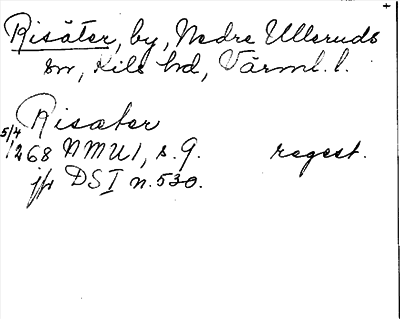 +
Risäter, by, Nedre Ulleruds
sn, Kils hd, Värml. l.
Risæter
5/4 1268 NMU1, s. 9. regest.
jfr DS I n. 530.